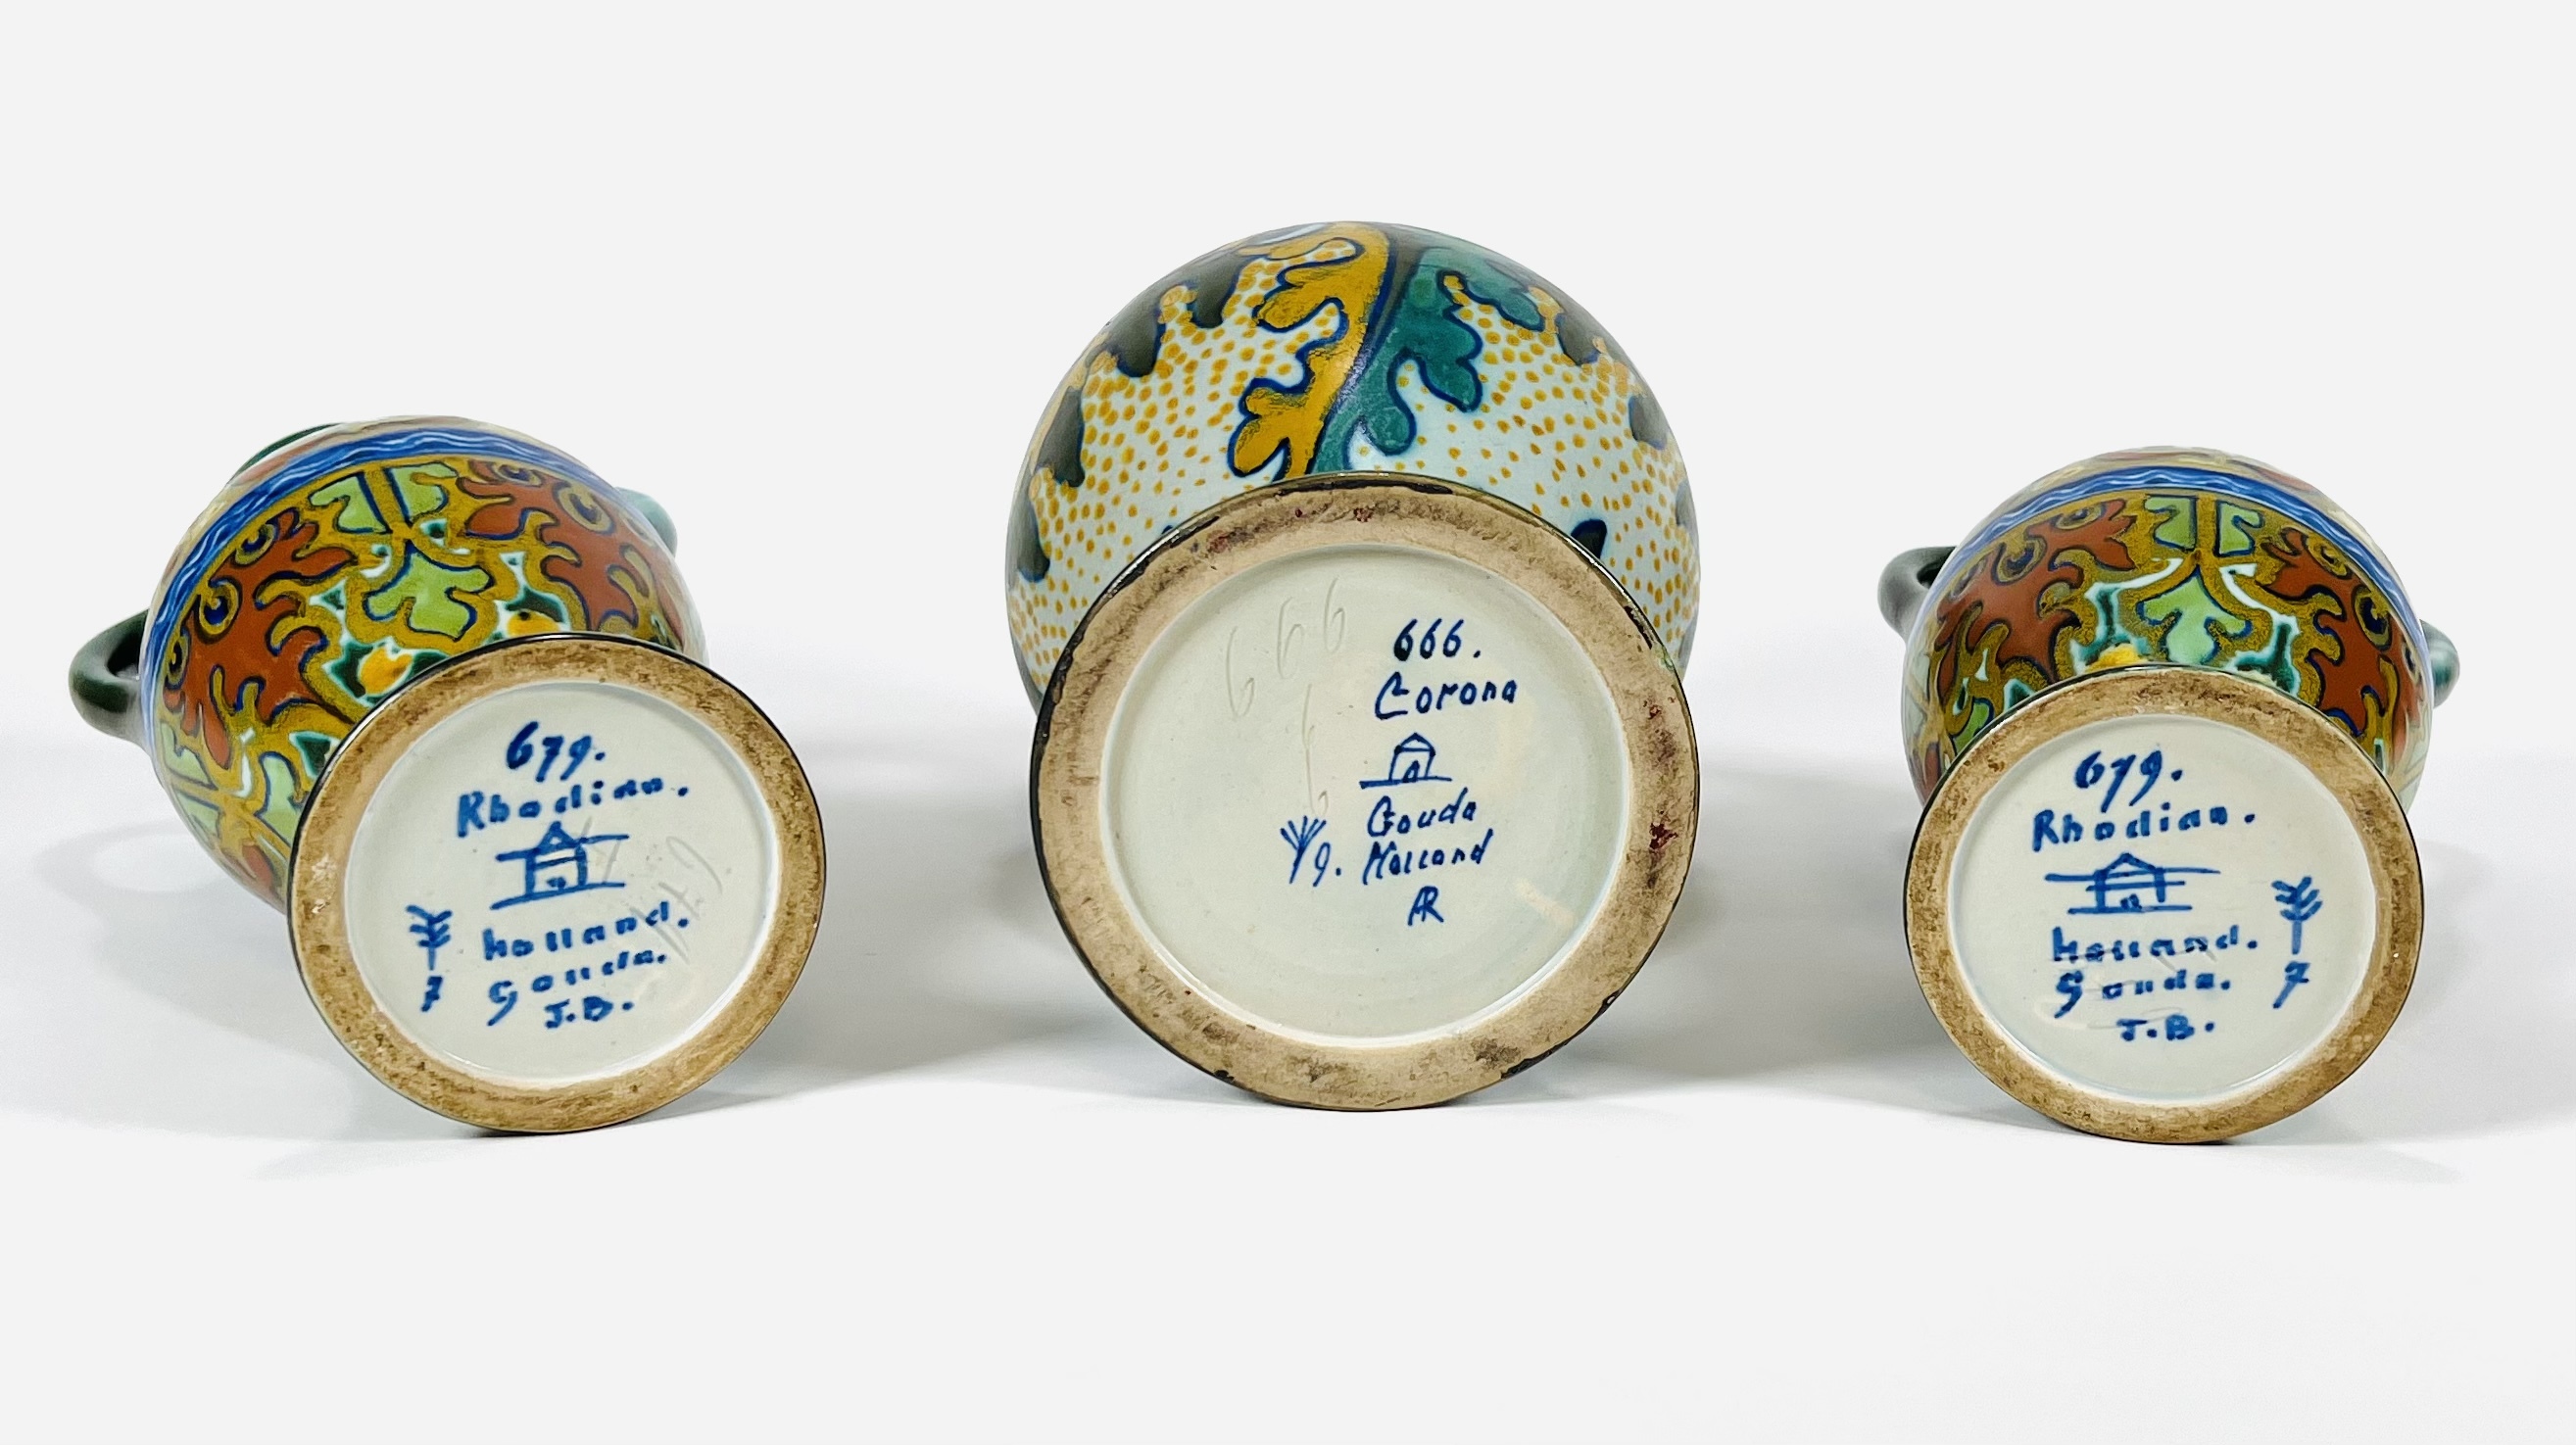 679.
Rhodian.
Holland.
7 Gouda.
J.B.
666
666.
Corona
Gouda
9. Holland
AR
679.
Rhodian.
Holland.
Gouda. 7
J.B.